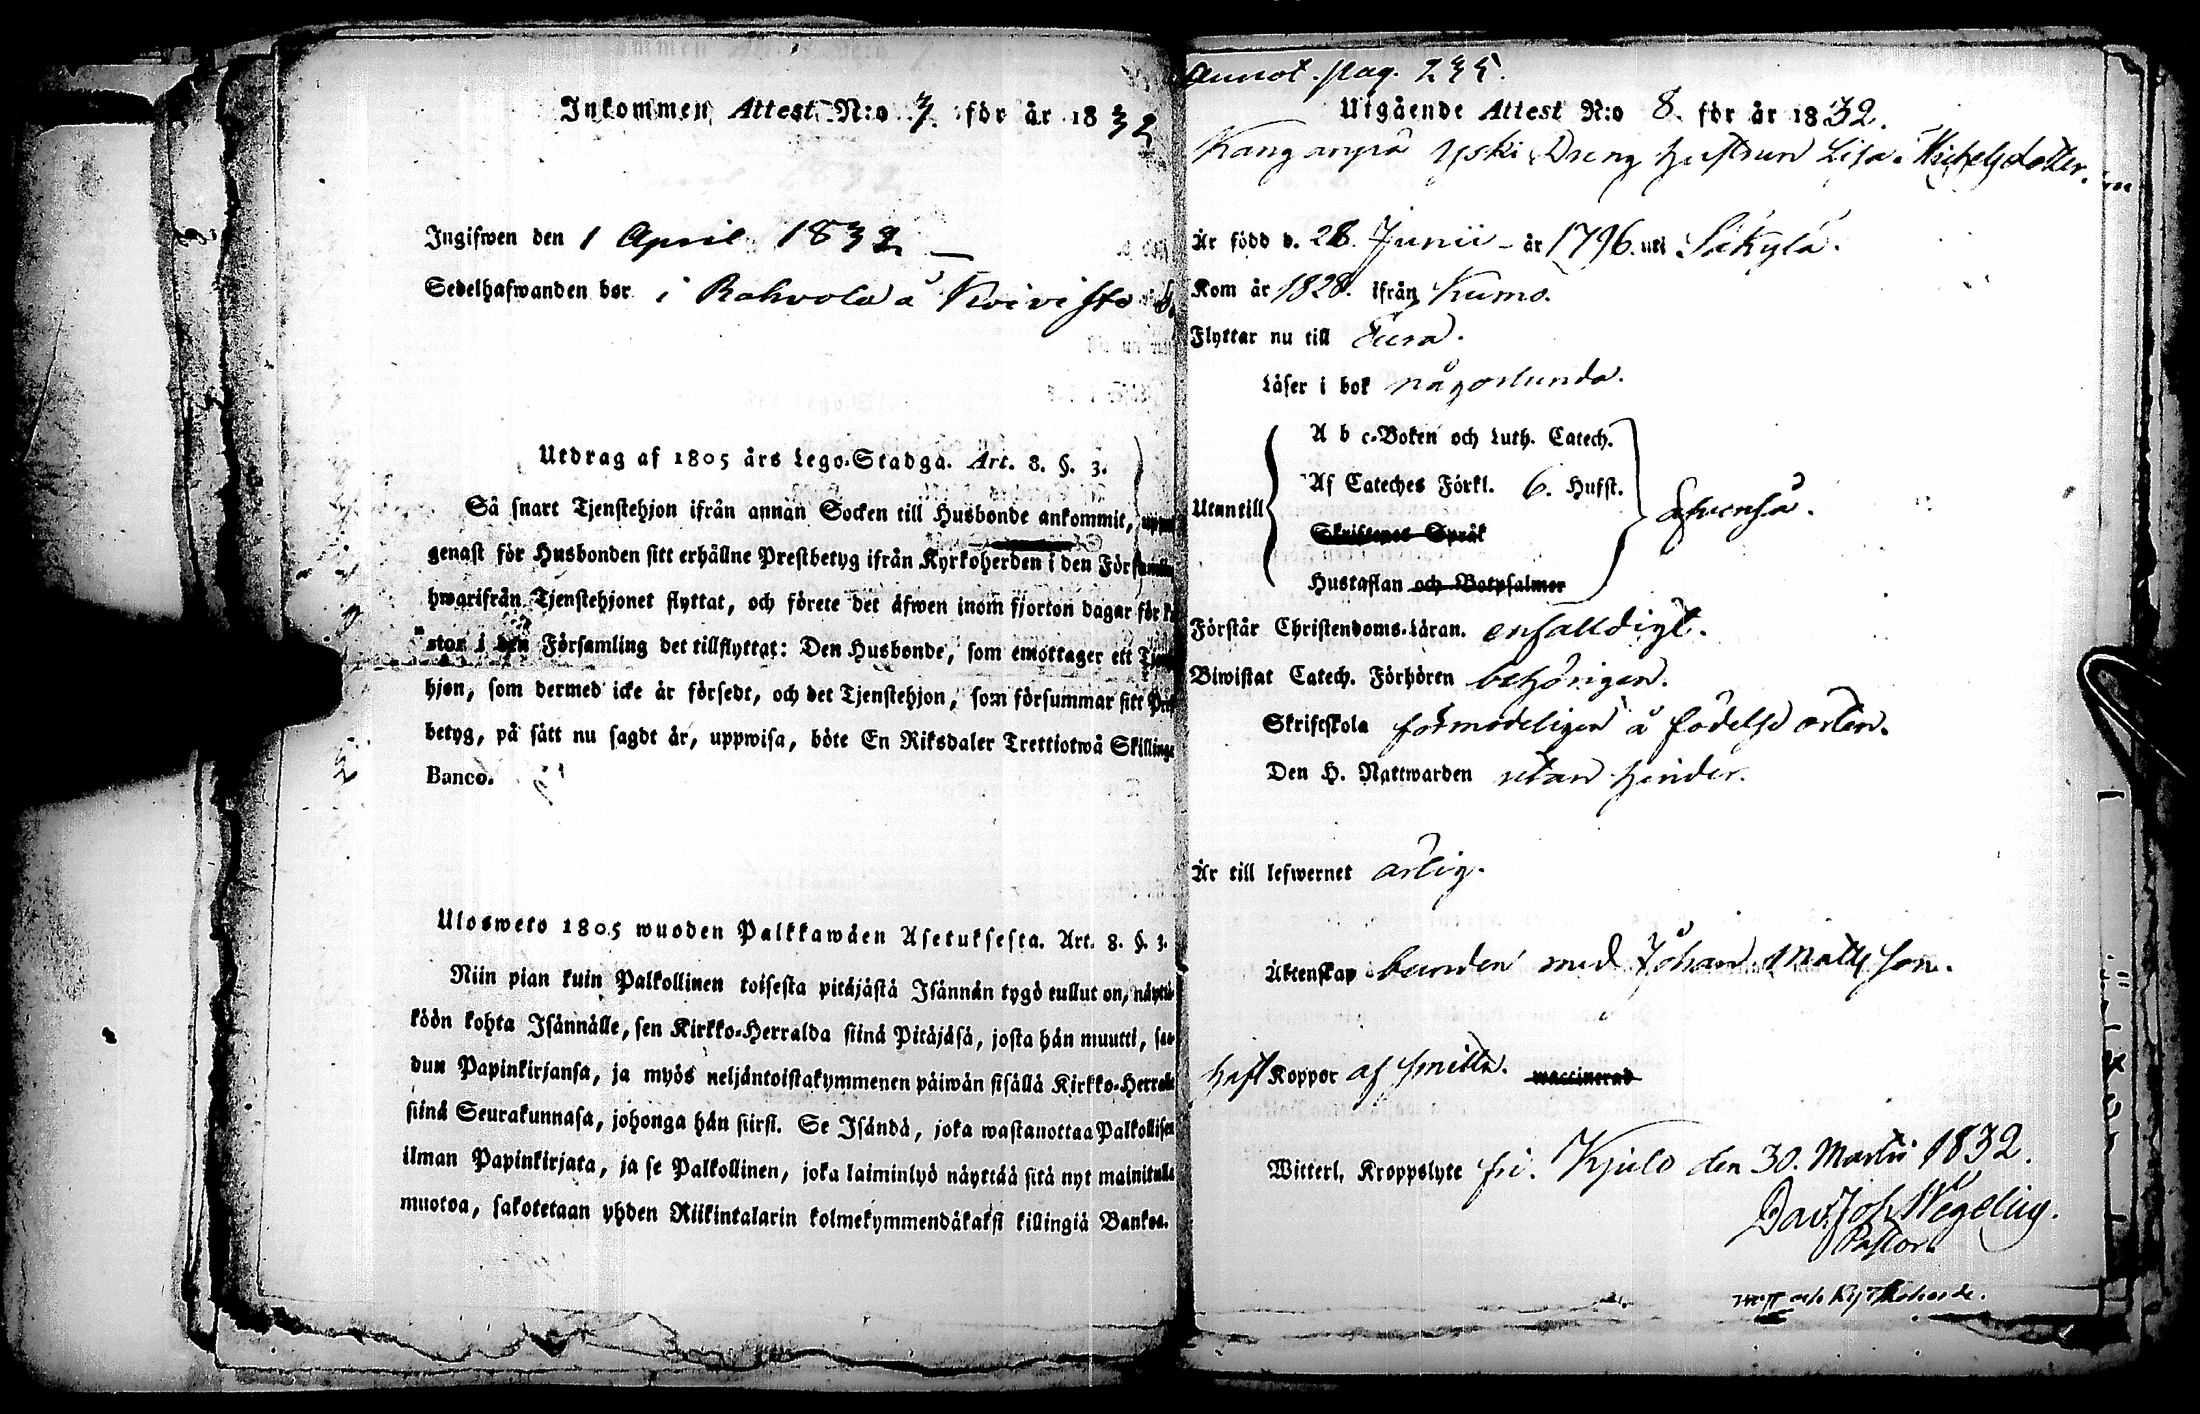 Inkommen Attest N:o 7. för år 1832
Ingifwen den 1 April 1832
Sedelhafwanden bor i Rahvola å Koivisto
Utdrag af 1805 års Lego-Stadga. Art. 8. §. 3.
Så snart Tjenstehjon ifrån annan Socken till Husbonde ankommit,
genast för Husbonden sitt erhållne Prestbetyg ifrån Kyrkoherden i den Församli
hwarifrån Tjenstehjonet flyttat, och förete det äfwen inom fjorton dagar för
stor i den Församling det tillflyttat: Den Husbonde, som emottager ett Tjen
hjon, som dermed icke är försedt, och det Tjenstehjon, som försummar sitt Pres
betyg, på sätt nu sagdt är, uppwisa, böte En Riksdaler Trettiotwå Skillinge
Banco.
Ulosweto 1805 wuoden Palkkawäen Asetuksesta. Art. 8. §. 3.
Niin pian kuin Palkollinen toisesta pitäjästä Isännän tygö tullut on, näyttä
köön kohta Isännälle, sen Kirkko-Herralda siinä Pitäjäsä, josta hän muutti, saa
dun Papinkirjansa, ja myös neljäntoistakymmenen päiwän sisällä Kirkko-Herralle
siinä Seurakunnasa, johonga hän siirsi. Se Isändä, joka wastanottaa Palkollisen
ilman Papinkirjata, ja se Palkollinen, joka laiminlyö näyttää sitä nyt mainitulla
muotoa, sakotetaan yhden Riikintalarin kolmekymmendäkaksi killingiä Bankoa.
Annot. pag. 235.
Utgående Attest N:o 8. för år 1832.
Yski Dreng hustrun Lisa Michelsdotter.
Är född d. 28. Junii - år 1796. uti Säkylä.
Kom år 1828. ifrån Kumo.
Flyttar nu till Eura.
Läser i bok någorlunda.
Utantill
A b c-Boken och Luth. Catech.
Af Cateches Förkl. 6. Hufst.
Skriftenes Språk
Hustaflan och Botpsalmer
Förstår Christendoms-läran. enfalldigt.
Biwistat Catech. Förhören behörigen.
Skriftskola förmodeligen å födelse orten.
Den H. Nattwarden utan hinder.
Är till lefwernet ärlig.
Äktenskap bunden med Johan Mattsson.
haft Koppor af smitta. waccinerad
Witterl. Kroppslyte fri. Kjulo den 30. Martii 1832.
Dav. Joh. Wegelius.
Pastor.